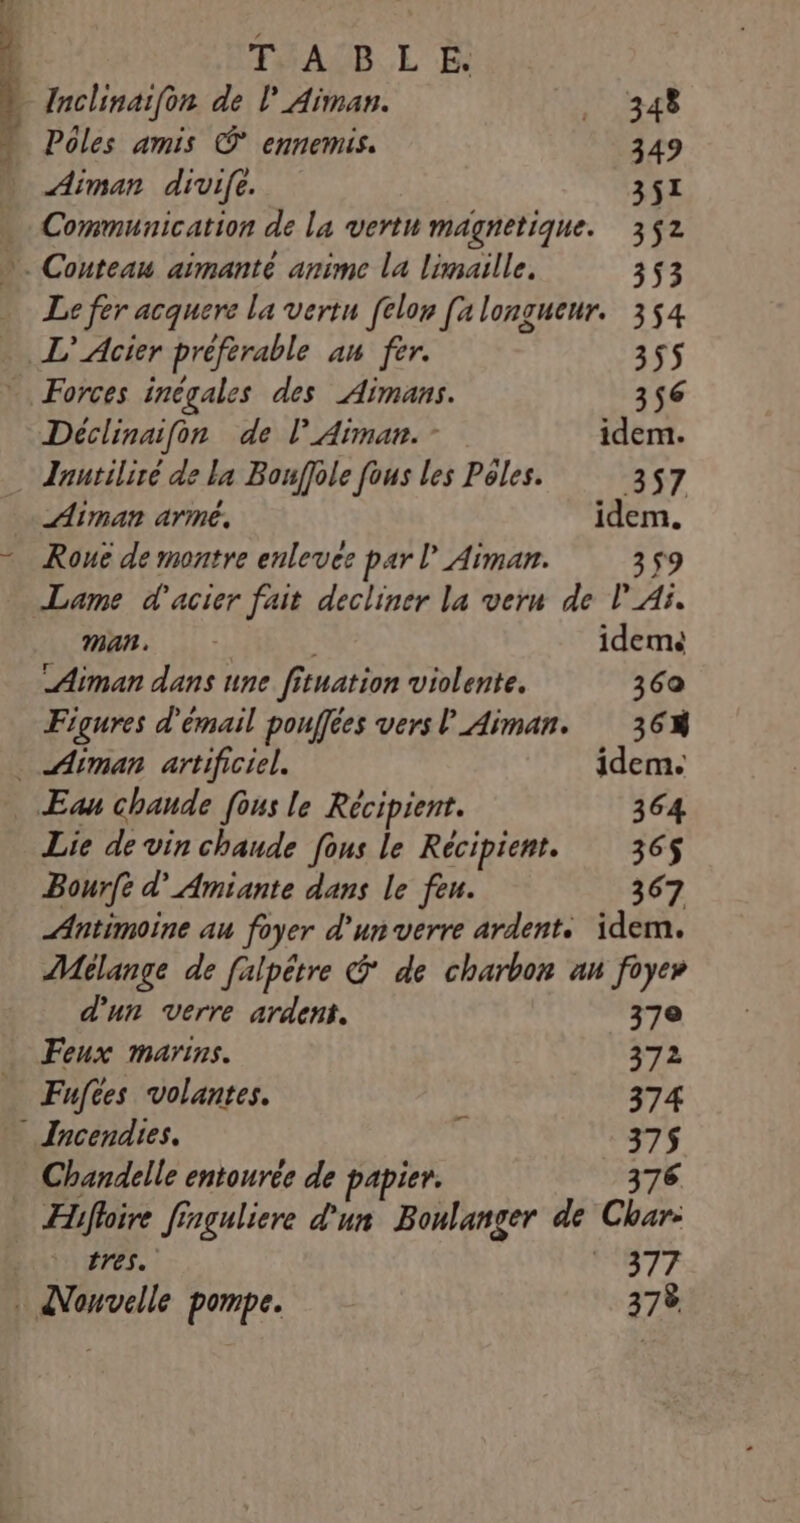 TABLE.
Inclinaiſon de l'Aiman. 348
Póles amis & ennemis. 349
Aiman diviſé. 351
Communication de la vertu magnetique. 352
Couteau aimanté anime la limaille. 353
Le fer acquere la vertu ſelon ſa longueur. 354
L'Acier préferable au fer. 355
Forces inégales des Aimans. 356
Déclinaiſon de l'Aiman. idem.
Inutilité de la Bouſſole ſous les Póles. 357
Aiman armé. idem.
Rouë de montre enlevée par l'Aiman. 359
Lame d'acier fait decliner la veru de l'Ai.
man. idem.
Aiman dans une ſituation violente. 360
Figures d'émail pouſſées vers l'Aiman. 36
Aiman artificiel. idem.
Eau chaude ſous le Récipient. 364
Lie de vin chaude ſous le Récipient. 365
Bourſe d'Amiante dans le feu. 367
Antimoine au foyer d'un verre ardent. idem.
Mélange de ſalpêtre & de charbon au foyer
d'un verre ardent. 370
Feux marins. 372
Fuſées volantes. 374
Incendies. 375
Chandelle entourée de papier. 376
Hiſtoire ſinguliere d'un Boulanger de Char-
tres. 377
Nouvelle pompe. 378